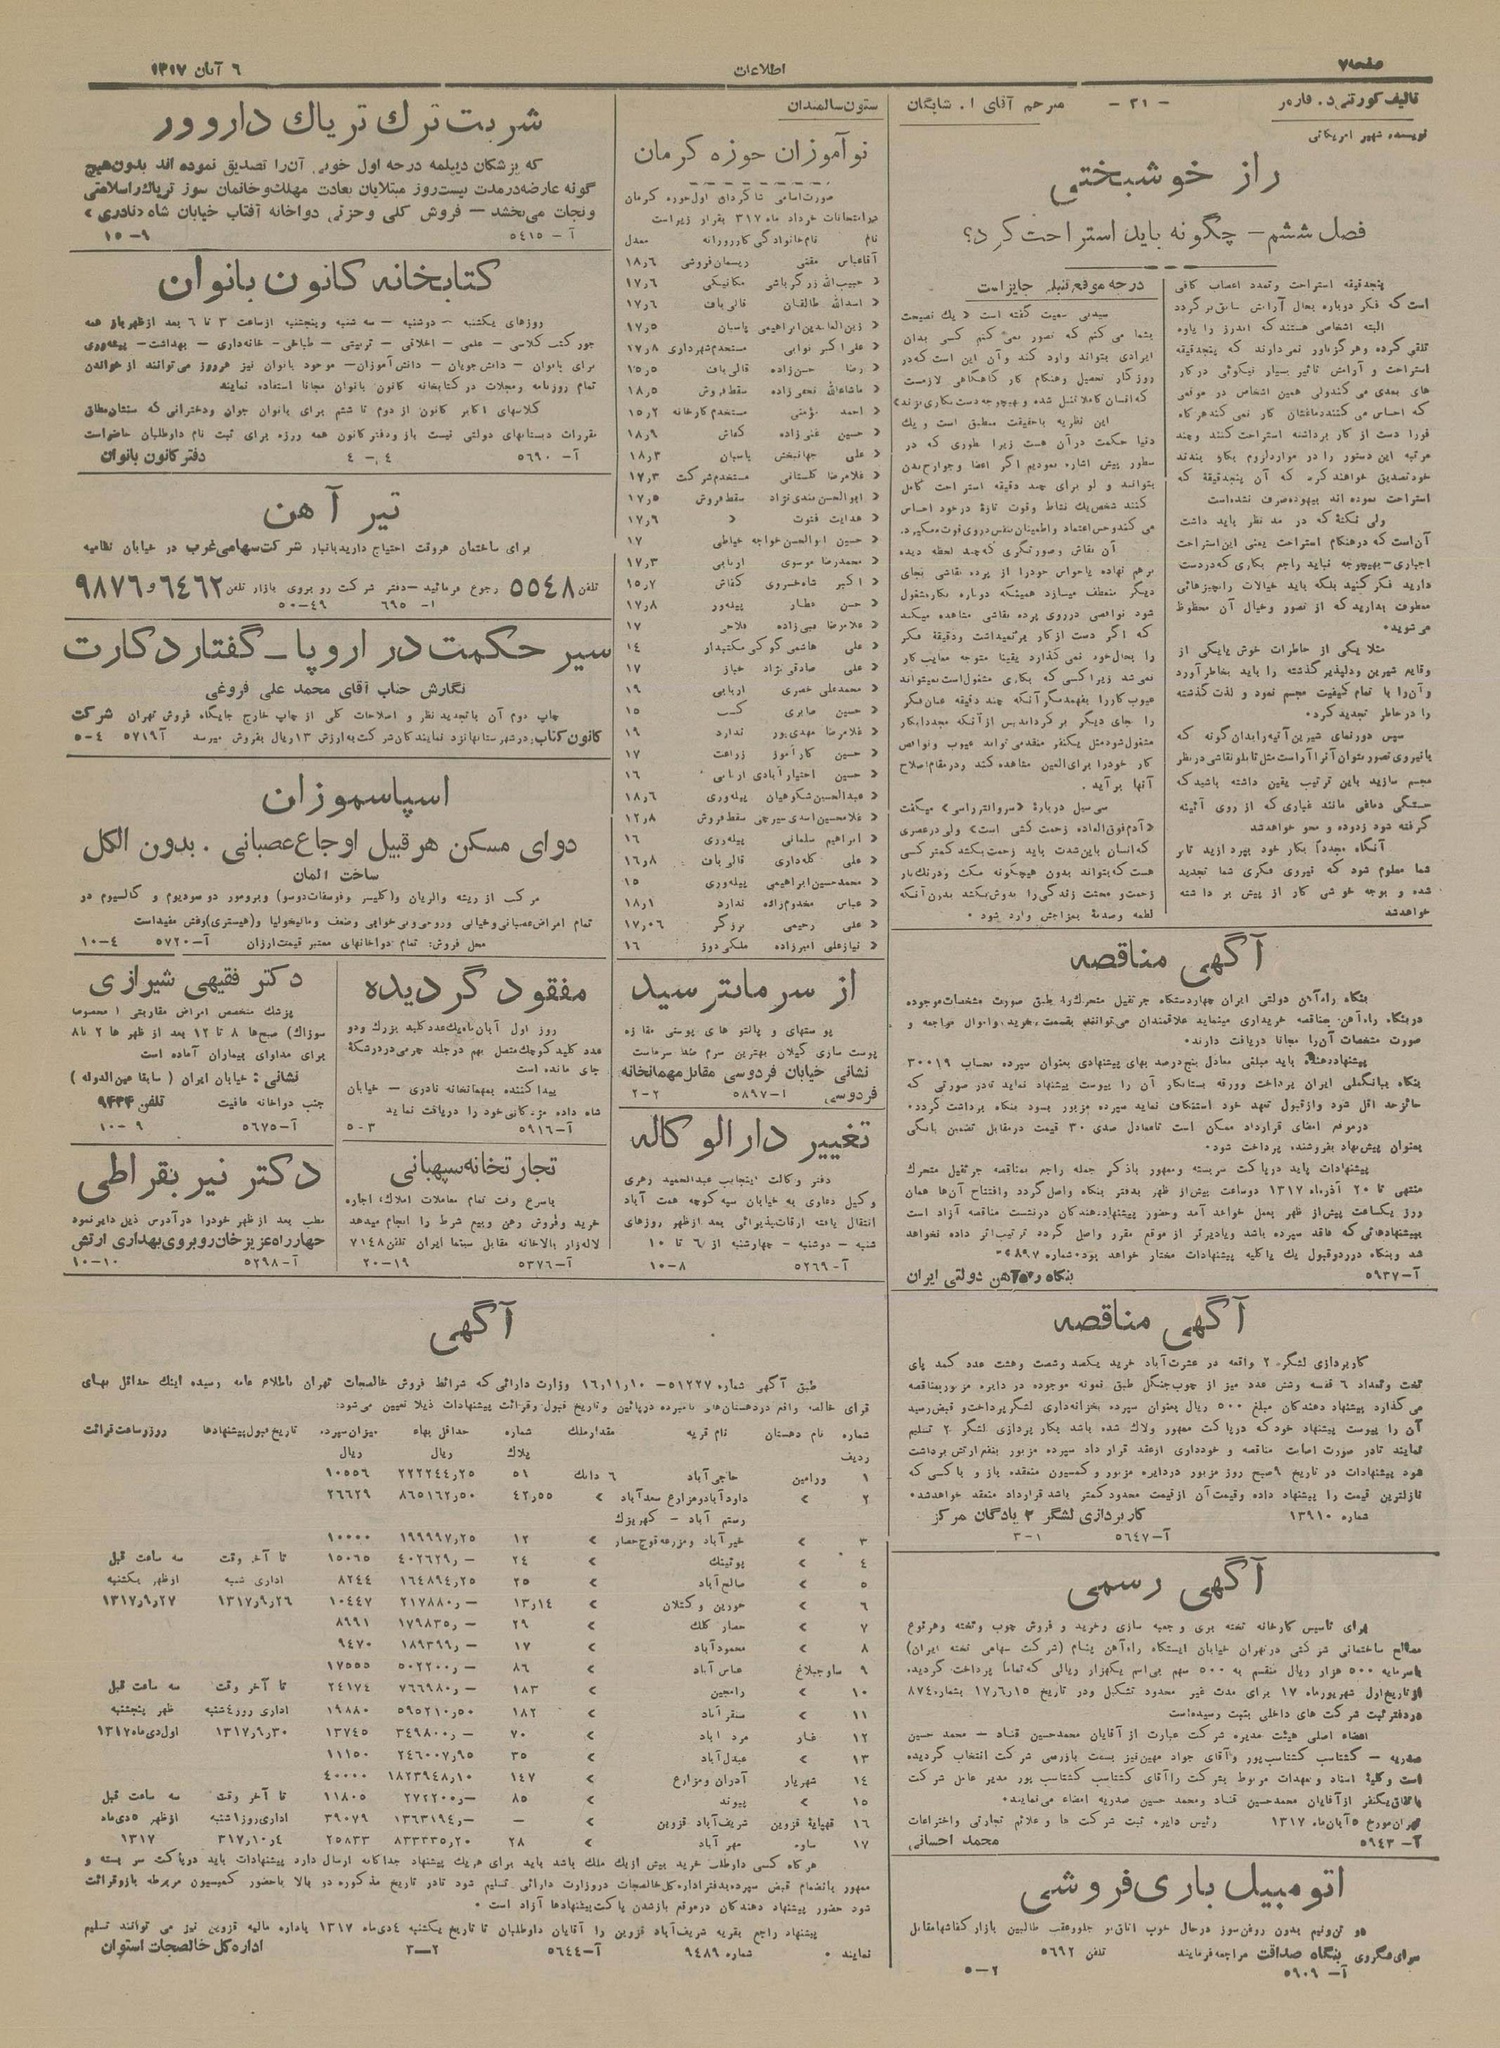 صفحه ۷
اطلاعات
۶ آبان ۱۳۱۷
- ۳۱ -
مترجم آقای ا. شایگان
نویسنده شهیر امریکائی
راز خوشبختی
فصل ششم - چگونه باید استراحت کرد؟
پنجدقیقه استراحت و تمدد اعصاب کافی
است که فکر دوباره بحال آرامش سابق برگردد
البته اشخاصی هستند که اندرز را یاوه
تلقی کرده و هرگز باور نمی‌دارند که پنجدقیقه
استراحت و آرامش تاثیر بسیار نیکوئی در کار
های بعدی می‌کند ولی همین اشخاص در موقعی
که احساس می‌کنند دماغشان کار نمی کند هرگاه
فورا دست از کار برداشته استراحت کنند و چند
مرتبه این دستور را در موارد لزوم بکار بندند
خود تصدیق خواهند کرد که آن پنجدقیقهٔ که
استراحت نموده اند بیهوده صرف نشده است
ولی نکتهٔ که در مد نظر باید داشت
آن است که در هنگام استراحت یعنی این استراحت
اجباری - بهیچوجه نباید راجع بکاری که در دست
دارید فکر کنید بلکه باید خیالات را بچیزهائی
معطوف بدارید که از تصور و خیال آن محظوظ
می شوید.
مثلا یکی از خاطرات خوش یا یکی از
وقایع شیرین و دلپذیر گذشته را باید بخاطر آورد
و آن را با تمام کیفیت مجسم نمود و لذت گذشته
را در خاطر تجدید کرد.
سپس دورنمای شیرین آتیه را بدان گونه که
با نیروی تصور بتوان آنرا آراست مثل تابلو نقاشی در نظر
مجسم سازید باین ترتیب یقین داشته باشید که
خستگی دماغی مانند غباری که از روی آئینه
گرفته شود زدوده و محو خواهد شد
آنگاه مجدداً بکار خود بپردازید تا بر
شما معلوم شود که نیروی فکری شما تجدید
شده و بوجه خوشی کار از پیش برداشته
خواهد شد
در چه موقع تنبلی جایز است
سیدنی سمیت گفته است «یک نصیحت
بشما می‌کنم که تصور نمی کنم کسی بدان
ایرادی بتواند وارد کند و آن این است که در
روزگار تحصیل و هنگام کار گاهگاهی لازمست
که انسان کاملا تنبل شده و بهیچوجه دست بکاری نزند»
این نظریه با حقیقت منطبق است و یک
دنیا حکمت در آن هست زیرا طوری که در
سطور پیش اشاره نمودیم اگر اعضا و جوارح بدن
بتوانند و لو برای چند دقیقه استراحت کامل
کنند شخص یک نشاط و قوت تازهٔ در خود احساس
می کند و حس اعتماد و اطمینان بنفس در وی قوت میگیرد.
آن نقاش و صورتگری که چند لحظه دیده
برهم نهاده یا حواس خود را از پرده نقاشی بجای
دیگر منعطف میسازد همینکه دوباره بکار مشغول
شود نواقصی در روی پرده نقاشی مشاهده میکند
که اگر دست از کار برنمیداشت و دقیقهٔ فکر
را بحال خود نمی گذارد یقینا متوجه معایب کار
نمی شد زیرا کسی که بکاری مشغول است نمیتواند
عیوب کار را بفهمد مگر آنکه چند دقیقه عنان فکر
را جای دیگر برگرداند پس از آنکه مجددا بکار
مشغول شود مثل یکنفر منقد می‌تواند عیوب و نواقص
کار خود را برای العین مشاهده کند و در مقام اصلاح
آنها برآید.
سی سیل دربارهٔ «سر والتر راسی» میگفت
«آدم فوق العاده زحمت کشی است» ولی در عصری
که انسان باین شدت باید زحمت بکشد کمتر کسی
هست که بتواند بدون هیچگونه مکث و درنگ بار
زحمت و محنت زندگی را بدوش بکشد بدون آنکه
لطمه و صدمهٔ بمزاجش وارد شود.
آگهی مناقصه
بنگاه راه آهن دولتی ایران چهار دستگاه جرثقیل متحرک را طبق صورت مشخصات موجوده
در بنگاه راه آهن بمناقصه خریداری مینماید علاقمندان می‌توانند بقسمت خرید و اموال مراجعه و
صورت مشخصات آن را مجانا دریافت دارند.
پیشنهاد دهنده باید مبلغی معادل پنج درصد بهای پیشنهادی بعنوان سپرده بحساب ۳۰۰۱۹
بنگاه ببانگ ملی ایران پرداخت و ورقه بستانکار آن را پیوست پیشنهاد نماید تا در صورتی که
حائز حد اقل شود و از قبول تعهد خود استنکاف نماید سپرده مزبور بسود بنگاه برداشت گردد.
در موقع امضای قرارداد ممکن است تا معادل صدی ۳۰ قیمت در مقابل تضمین بانکی
بعنوان پیش بهاء بفروشنده پرداخت شود.
پیشنهادات باید در پاکت سربسته و ممهور با ذکر جمله راجع بمناقصه جرثقیل متحرک
منتهی تا ۲۰ آذر ماه ۱۳۱۷ دو ساعت پیش از ظهر بدفتر بنگاه واصل گردد و افتتاح آن‌ها همان
روز یکساعت پیش از ظهر بعمل خواهد آمد و حضور پیشنهاد دهندگان در نشست مناقصه آزاد است
بپیشنهاد هائی که فاقد سپرده باشد و یا دیرتر از موقع مقرر واصل گردد ترتیب اثر داده نخواهد
شد و بنگاه در رد و قبول یک یا کلیه پیشنهادات مختار خواهد بود. شماره ۸۹۷
آ-۵۹۳۷ بنگاه راه آهن دولتی ایران
آگهی مناقصه
کارپردازی لشگر ۲ واقعه در عشرت آباد خرید یکصد و شصت و هشت عدد کمد پای
تخت و تعداد ۶ قفسه و شش عدد میز از چوب جنگل طبق نمونه موجوده در دایره مزبور بمناقصه
می گذارد پیشنهاد دهندگان مبلغ ۵۰۰ ریال بعنوان سپرده بخزانه‌داری لشگر پرداخت و قبض رسید
آن را پیوست پیشنهاد خود که در پاکت ممهور و لاک شده باشد بکارپردازی لشگر ۲ تسلیم
نمایند تا در صورت اصابت مناقصه و خودداری از عقد قرارداد سپرده مزبور بنفع ارتش برداشت
شود پیشنهادات در تاریخ ۹ صبح روز مزبور در دایره مزبور و کمسیون منعقده باز و با کسی که
نازلترین قیمت را پیشنهاد داده و قیمت آن از قیمت محدود کمتر باشد قرارداد منعقد خواهد شد.
شماره ۱۳۹۱۰ کارپردازی لشگر ۲ پادگان مرکز
آ-۵۶۴۷ ۱-۳
آگهی رسمی
برای تأسیس کارخانه تخته بری و جعبه سازی و خرید و فروش چوب و تخته و هر نوع
مصالح ساختمانی شرکتی در تهران خیابان ایستگاه راه آهن بنام (شرکت سهامی تخته ایران)
با سرمایه ۵۰۰ هزار ریال منقسم به ۵۰۰ سهم بی‌اسم یکهزار ریالی که تماماً پرداخت گردیده
از تاریخ اول شهریور ماه ۱۷ برای مدت غیر محدود تشکیل و در تاریخ ۱۷٫۶٫۱۵ بشماره ۸۷۴
در دفتر ثبت شرکت های داخلی بثبت رسیده است
اعضاء اصلی هیئت مدیره شرکت عبارت از آقایان محمدحسین قناد - محمد حسین
صدریه - گشتاسب گشتاسب پور و آقای جواد مهین نیز بسمت بازرسی شرکت انتخاب گردیده
است و کلیهٔ اسناد و تعهدات مربوط بشرکت را آقای گشتاسب گشتاسب پور مدیر عامل شرکت
باتفاق یکنفر از آقایان محمدحسین قناد و محمد حسین صدریه امضاء می‌نمایند.
تهران مورخ ۵ آبان ماه ۱۳۱۷ رئیس دایره ثبت شرکت ها و علائم تجارتی و اختراعات
آ-۵۹۴۳ محمد احسانی
اتومبیل باری فروشی
دو تن و نیم بدون روغن سوز در حال خوب اتاق نو جلو و عقب طالبین بازار کفاشها مقابل
بنگاه صداقت مراجعه فرمایند تلفن ۵۶۹۲
آ-۵۶۰۹ ۲-۵
ستون سالمندان
نوآموزان حوزه کرمان
صورت اسامی شاگردان اول حوزه کرمان
در امتحانات خرداد ماه ۳۱۷ بقرار زیر است
نام نام خانوادگی کار روزانه معدل
آقا عباس مقنی ریسمان فروشی ۱۸٫۶
« حبیب الله زرگر باشی مکانیکی ۱۷٫۶
« اسدالله طالقان قالی باف ۱۷٫۶
« زین العابدین ابراهیمی پاسبان ۱۷٫۵
« علی اکبر نوابی مستخدم شهرداری ۱۷٫۸
« رضا حسن زاده قالی باف ۱۵٫۵
« ماشاءالله نخعی زاده سقط فروش ۱۸٫۵
« احمد مؤمنی مستخدم کارخانه ۱۵٫۲
« حسین غنی زاده کفاش ۱۸٫۹
« علی جهانبخش پاسبان ۱۸٫۳
« غلامرضا گلستانی مستخدم شرکت ۱۷٫۳
« ابوالحسن سقط فروش ۱۷٫۵
« هدایت فتوت « ۱۷٫۶
« حسین ابوالحسن خواجه خیاطی ۱۷
« محمدرضا موسوی اربابی ۱۷٫۳
« اکبر شاه خسروی کفاش ۱۵٫۷
« حسن عطار پیله‌ور ۱۷٫۸
« غلامرضا نبی زاده فلاحی ۱۷
« علی هاشمی گوکی مکتبدار ۱۴
« علی صادقی نژاد خباز ۱۷
« محمدعلی خضری اربابی ۱۹
« حسین صابری کسب ۱۵
« غلامرضا مهدی پور ندارد ۱۹
« حسین کارآموز زراعت ۱۷
« حسین اختیارآبادی اربابی ۱۶
« عبدالحسین شکوهیان پیله‌وری ۱۸٫۶
« غلامحسین اسدی سیرچی سقط فروش ۱۲٫۸
« ابراهیم سلمانی پیله‌وری ۱۶
« علی کله‌داری قالی باف ۱۶٫۸
« محمدحسین ابراهیمی پیله‌وری ۱۵
« عباس مخدوم زاده ندارد ۱۸٫۱
« علی رحیمی برزگر ۱۷٫۰۶
« نیاز علی امیرزاده ملکی دوز ۱۶
از سرما نترسید
پوستهای و پالتو های پوستی مغازه
پوست سازی گیلان بهترین سرم ضد سرماست
نشانی خیابان فردوسی مقابل مهمانخانه
فردوسی آ-۵۸۹۷ ۲-۲
تغییر دارالوکاله
دفتر وکالت اینجانب عبدالحمید زهری
وکیل دعاوی به خیابان سپه کوچه همت آباد
انتقال یافته اوقات پذیرائی بعد از ظهر روزهای
شنبه - دوشنبه - چهارشنبه از ۶ تا ۱۰
آ-۵۲۶۹ ۸-۱۰
شربت ترک تریاک داروور
که پزشکان دیپلمه درجه اول خوبی آن را تصدیق نموده اند بدون هیچ
گونه عارضه در مدت بیست روز مبتلایان بعادت مهلک و خانمان سوز تریاک را سلامتی
و نجات می‌بخشد - فروش کلی و جزئی دواخانه آفتاب خیابان شاه «نادری»
آ-۵۴۱۵ ۹-۱۵
کتابخانه کانون بانوان
روزهای یکشنبه - دوشنبه - سه شنبه و پنجشنبه از ساعت ۳ تا ۶ بعد از ظهر باز همه
جور کتب کلاسی - علمی - اخلاقی - تربیتی - طباخی - خانه‌داری - بهداشت - پیشه‌وری
برای بانوان - دانش جویان - دانش آموزان - موجود بانوان نیز هر روز می‌توانند از خواندن
تمام روزنامه و مجلات در کتابخانه کانون بانوان مجانا استفاده نمایند
کلاسهای اکابر کانون از دوم تا ششم برای بانوان جوان و دخترانی که سنشان مطابق
مقررات دبستانهای دولتی نیست باز و دفتر کانون همه روزه برای ثبت نام داوطلبان حاضر است
آ-۵۶۹۰ ۴-۴ دفتر کانون بانوان
تیر آهن
برای ساختمان هروقت احتیاج دارید بانبار شرکت سهامی غرب در خیابان نظامیه
تلفن ۵۵۴۸ رجوع فرمائید - دفتر شرکت روبروی بازار تلفن ۶۴۶۲ و ۹۸۷۶
آ-۶۹۵ ۴۹-۵۰
سیر حکمت در اروپا - گفتار دکارت
نگارش جناب آقای محمد علی فروغی
چاپ دوم آن با تجدید نظر و اصلاحات کلی از چاپ خارج جایگاه فروش تهران شرکت
کانون کتاب، در شهرستانها نزد نمایندگان شرکت به ارزش ۱۳ ریال بفروش میرسد آ۵۷۱۹ ۴-۵
اسپاسموزان
دوای مسکن هر قبیل اوجاع عصبانی . بدون الکل
ساخت المان
مرکب از ریشه والریان و (کلیسر و فوسفات دوسو) و برومور دو سودیوم و کالسیوم در
تمام امراض عصبانی و خیالی و روحی و بی‌خوابی و ضعف و مالیخولیا و (هیستری) و غش مفید است
محل فروش: تمام دواخانهای معتبر قیمت ارزان آ-۵۷۲۰ ۴-۱۰
مفقود گردیده
روز اول آبان ماه یک عدد کلید بزرگ و دو
عدد کلید کوچک متصل بهم در جلد چرمی در درشکهٔ
جای مانده است
پیدا کننده بمهمانخانه نادری - خیابان
شاه داده مژدگانی خود را دریافت نماید
آ-۵۹۱۶ ۳-۵
دکتر فقیهی شیرازی
پزشک متخصص امراض مقاربتی (مخصوصا
سوزاک) صبح‌ها ۸ تا ۱۲ بعد از ظهر ها ۲ تا ۸
برای مداوای بیماران آماده است
نشانی: خیابان ایران (سابقا عین الدوله)
جنب دواخانه عافیت تلفن ۹۴۳۴
آ-۵۶۷۵ ۹-۱۰
تجارتخانه سپهبانی
باسرع وقت تمام معاملات املاک، اجاره
خرید و فروش رهن و بیع شرط را انجام میدهد
لاله‌زار بالاخانه مقابل سینما ایران تلفن ۷۱۴۸
آ-۵۳۷۶ ۱۹-۲۰
دکتر نیر بقراطی
مطب بعد از ظهر خود را در آدرس ذیل دایر نمود
چهارراه عزیزخان روبروی بهداری ارتش
آ-۵۲۹۸ ۱۰-۱۰
آگهی
طبق آگهی شماره ۵۱۲۲۷-۱۶٫۱۱٫۱۰ وزارت دارائی که شرائط فروش خالصجات تهران باطلاع عامه رسیده اینک حداقل بهای
قرای خالصه واقع در دهستان‌های نامبرده در پائین و تاریخ قبول و قرائت پیشنهادات ذیلا تعیین می‌شود:
شماره نام دهستان نام قریه مقدار ملک شماره حداقل بهاء میزان سپرده تاریخ قبول پیشنهادها روز و ساعت قرائت
ردیف پلاک ریال ریال
۱ ورامین حاجی آباد ۶ دانگ ۵۱ ۲۲۲۲۴۴٫۲۵ ۱۰۵۵۶
۲ « داود آباد و مزارع سعد آباد « ۴۲٫۵۵ ۸۶۵۱۶۲٫۵۰ ۲۶۶۲۹
رستم آباد - کهریزک
۳ « خیرآباد و مزرعه قوچ حصار « ۱۲ ۱۹۹۹۹۷٫۲۵ ۱۰۰۰۰
۴ « پوئینک « ۲۴ ۴۰۲۶۲۹٫- ۱۵۰۶۵ تا آخر وقت سه ساعت قبل
۵ « صالح آباد « ۲۵ ۱۶۴۸۹۴٫۲۵ ۸۲۴۴ اداری شنبه از ظهر یکشنبه
۶ « جورین و کتلان « ۱۳٫۱۴ ۲۱۷۸۸۰٫- ۱۰۴۴۷ ۱۳۱۷٫۹٫۲۶ ۱۳۱۷٫۹٫۲۷
۷ « حصار کلک « ۲۹ ۱۷۹۸۳۵٫- ۸۹۹۱
۸ « محمودآباد « ۱۷ ۱۸۹۳۹۹٫- ۹۴۷۰
۹ ساوجبلاغ عباس آباد « ۸۶ ۵۰۲۲۰۰٫- ۱۷۵۵۵
۱۰ « رامجین « ۱۸۳ ۷۶۶۹۸۰٫- ۲۴۱۷۴ تا آخر وقت سه ساعت قبل
۱۱ « سنقرآباد « ۱۸۲ ۵۹۵۲۱۰٫۵۰ ۱۹۸۸۰ اداری روز ۴ شنبه ظهر پنجشنبه
۱۲ غار مرد آباد « ۷۰ ۳۴۹۸۰۰٫- ۱۳۷۴۵ ۱۳۱۷٫۹٫۳۰ اول دی ماه ۱۳۱۷
۱۳ « عبدل آباد « ۳۵ ۲۴۶۰۰۷٫۹۵ ۱۱۱۵۰
۱۴ شهریار آدران و مزارع « ۱۴۷ ۱۸۲۳۹۴۸٫۱۰ ۴۰۰۰۰
۱۵ « پیوند « ۸۵ ۲۷۲۲۰۰٫- ۱۱۸۰۵ تا آخر وقت سه ساعت قبل
۱۶ قهپایهٔ قزوین شریف آباد قزوین « - ۱۳۶۳۱۹۴٫- ۳۹۰۷۹ اداری روز ۱ شنبه از ظهر ۵ دی ماه
۱۷ ساوه مهرآباد « ۲۸ ۸۳۳۳۳۵٫۲۰ ۲۵۸۳۳ ۳۱۷٫۱۰٫۴ ۱۳۱۷
هر گاه کسی داوطلب خرید بیش از یک ملک باشد باید برای هر یک پیشنهاد جداگانه ارسال دارد پیشنهادات باید در پاکت سر بسته و
ممهور بانضمام قبض سپرده بدفتر اداره کل خالصجات در وزارت دارائی تسلیم شود تا در تاریخ مذکوره در بالا با حضور کمیسیون مربوطه باز و قرائت
شود حضور پیشنهاد دهندگان در موقع باز شدن پاکت پیشنهادها آزاد است.
پیشنهاد راجع بقریه شریف آباد قزوین را آقایان داوطلبان تا تاریخ یکشنبه ۴ دی ماه ۱۳۱۷ باداره مالیه قزوین نیز می توانند تسلیم
نمایند. شماره ۹۴۸۹ آ-۵۶۴۴ ۲-۳ اداره کل خالصجات استوان